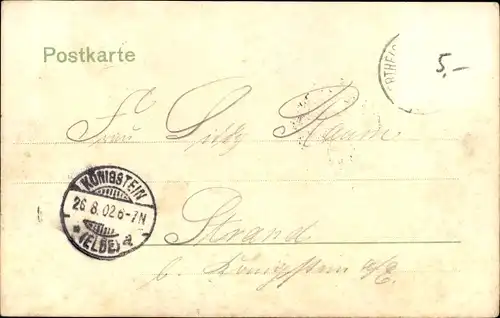 Postkarte
5,-
Frau Raum
KÖNIGSTEIN
26 8.02 6-7N
* (ELBE) a
Strand
b. Königstein a/E.